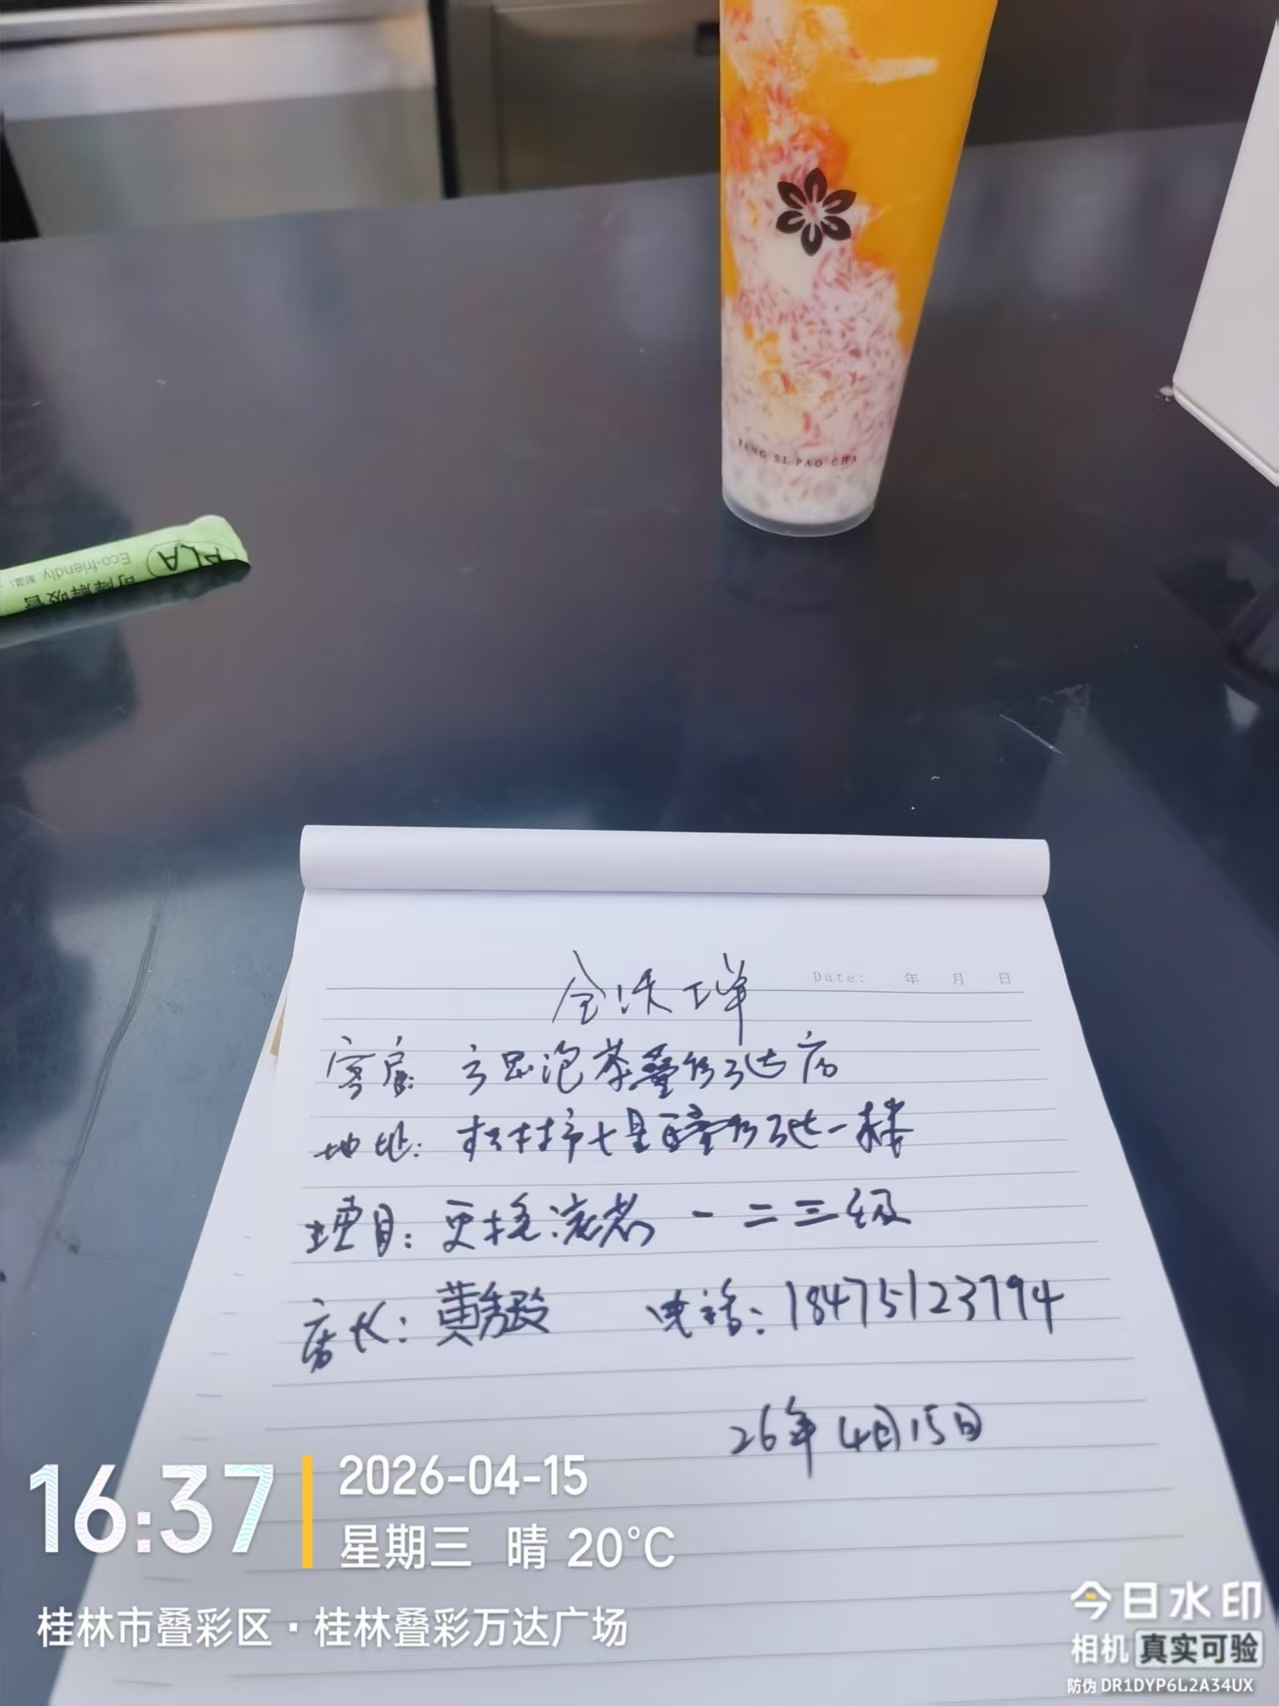 FANG SI PAO CHA
PLA
Eco-friendly
可降解吸管
Date: 年 月 日
全沃
客户: 方思泡茶叠彩万达店
地址: 桂林市七星区叠彩万达一楼
项目: 更换滤芯 一二三级
店长: 黄 电话: 18475123794
26年4月15日
16:37
2026-04-15
星期三 晴 20°C
桂林市叠彩区·桂林叠彩万达广场
今日水印
相机 真实可验
防伪 DR1DYP6L2A34UX